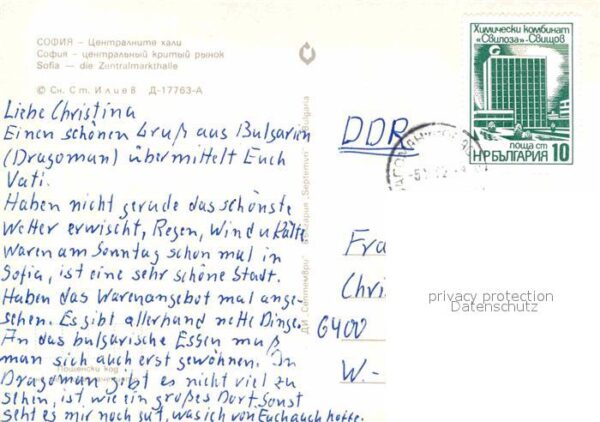 СОФИЯ – Централните хали
София – центральный критый рынок
Sofia — die Zentralmarkthalle
© Сн. Ст. Илиев Д-17763-А
Liebe Christina
Einen schönen Gruß aus Bulgarien
(Dragoman) übermittelt Euch
Vati.
Haben nicht gerade das schönste
Wetter erwischt, Regen, Wind u Kälte
Waren am Sonntag schon mal in
Sofia, ist eine sehr schöne Stadt.
Haben das Warenangebot mal ange-
sehen. Es gibt allerhand nette Dinge.
An das bulgarische Essen muß
man sich auch erst gewöhnen. In
Dragoman gibt es nicht viel zu
sehen, ist wie ein großes Dorf. Sonst
geht es mir noch gut, was ich von Euch auch hoffe.
Пощенски код
ДИ „Септември" България "Septemvri" Bulgaria
Химически комбинат
«Свилоза»-Свищов
поща ст
НР БЪЛГАРИЯ 10
DDR
Fra
Chri
6400
W.-
privacy protection
Datenschutz